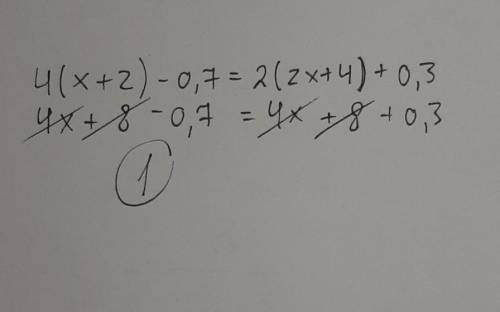 4(x+2)-0,7=2(2x+4)+0,3
4x+8-0,7=4x+8+0,3
1